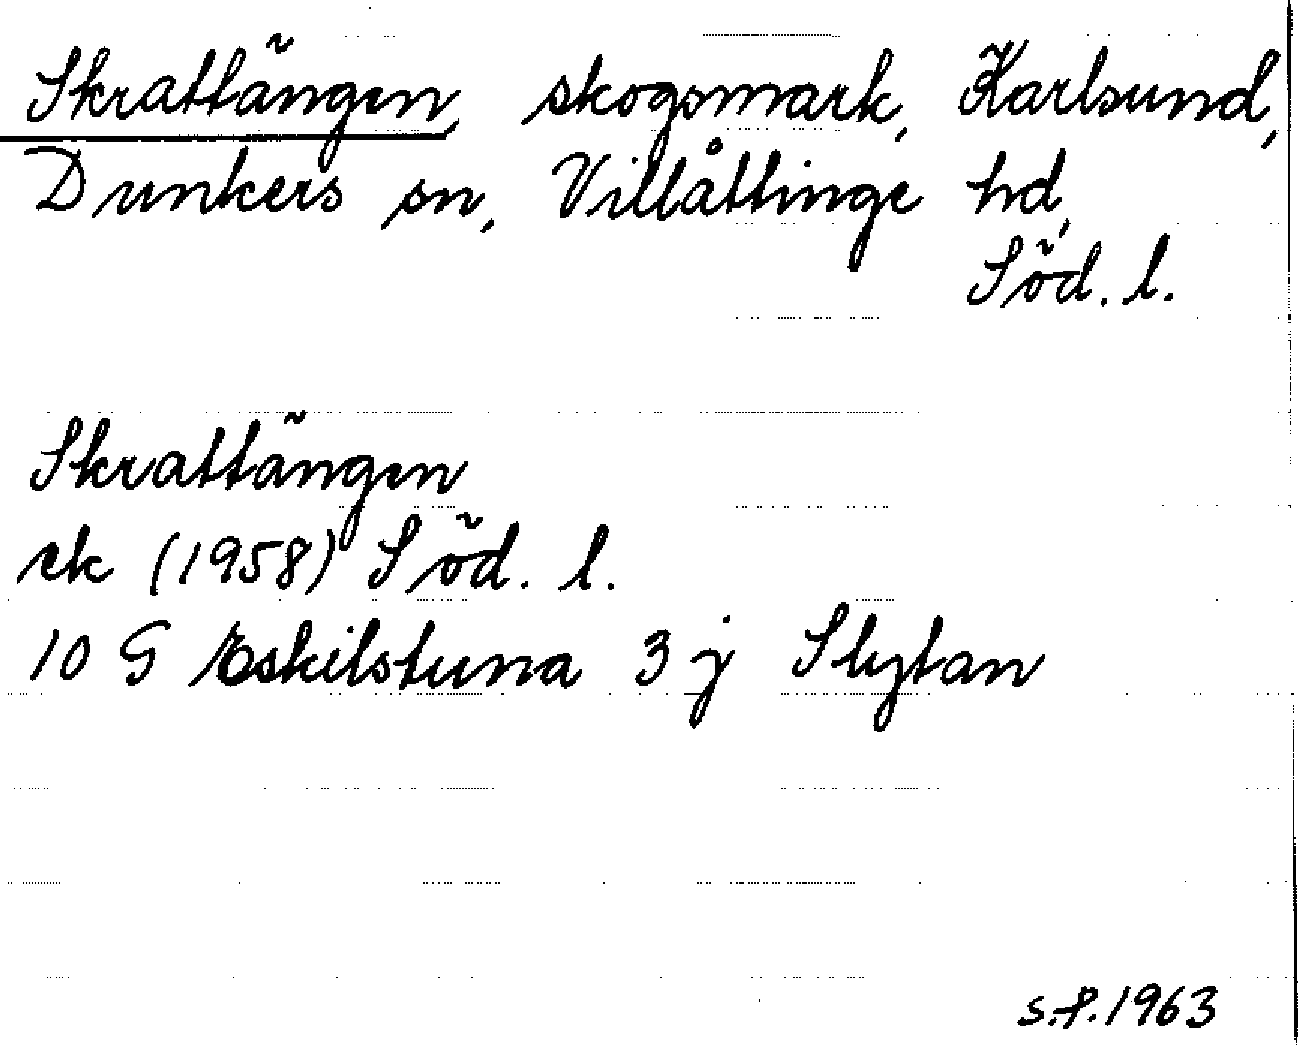 Skrattängen, skogsmark, Karlsund,
Dunkers sn, Villåttinge hd,
Söd. l.
Skrattängen
ek (1958) Söd. l.
10 G Eskilstuna 3 j Slytan
s.f. 1963